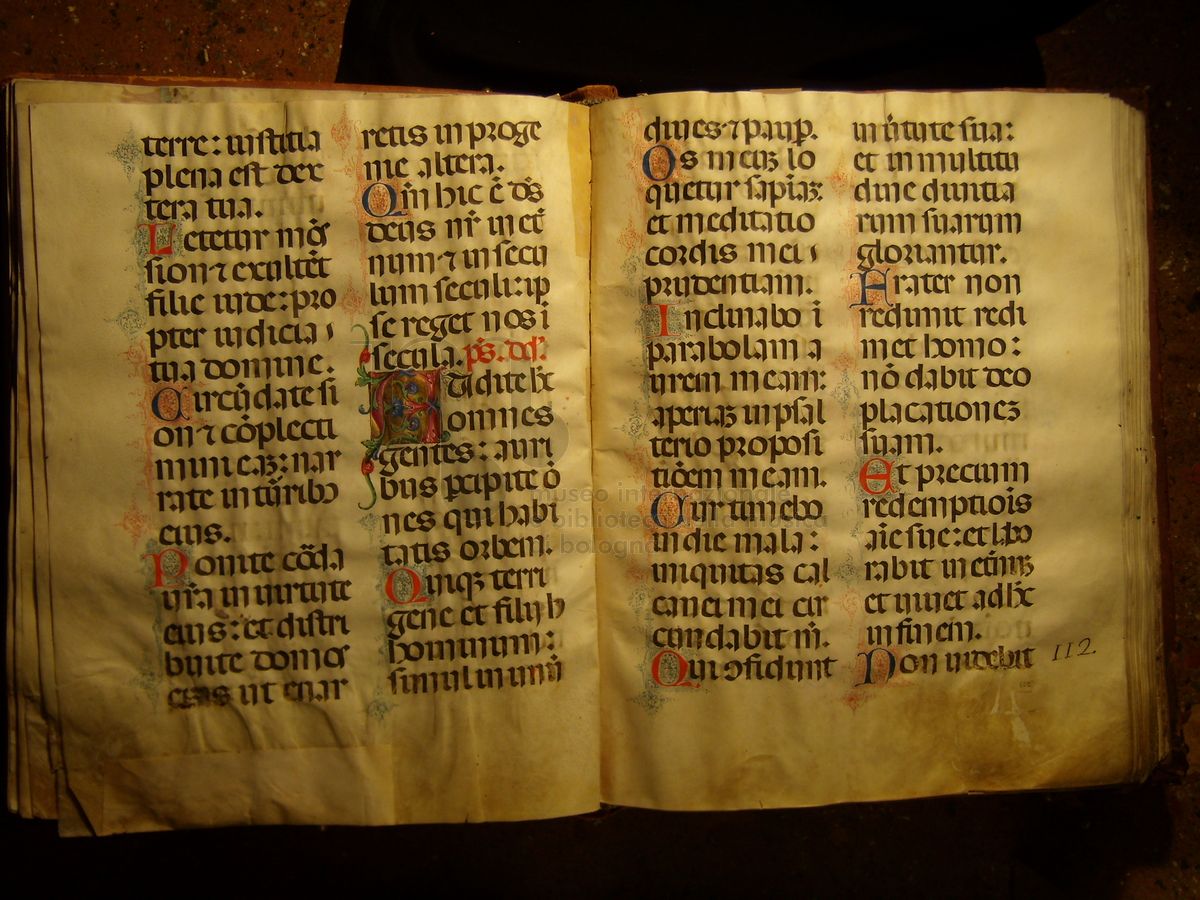 terre: iustitia
plena est dex
tera tua.
Letetur mōs
sion ⁊ exultēt
filie iude: pro
pter iudicia
tua domine.
Circūdate si
on ⁊ cōplecti
mini eaꝫ: nar
rate in tūribꝫ
eius.
Ponite cōda
ur̄a in uirtute
eius: et distri
buite domos
eius ut enar
retis in proge
nie altera.
Qm̄ hic ē dd̄s
deus nr̄ in et̄
num ⁊ in secu
lum seculi: ip
se reget nos ī
secula. ps.
Audite hc̄
omnes
gentes: auri
bus ꝑcipite ō
nes qui habi
tatis orbem.
Quiqꝫ terri
gene et filij h
hominum:
simul in unū
diues ⁊ paup̄.
Os meuꝫ lo
quetur sapīaꝫ:
et meditatio
cordis mei
prudentiam.
Inclinabo ī
parabolam a
urem meam:
aperiaꝫ in psal
terio proposi
tiōem meam.
Cur timebo
in die mala:
iniquitas cal
canei mei cir
cundabit m̄.
Qui ꝯfidunt
in ūtute sua:
et in multitu
dine diuitia
rum suarum
gloriantur.
Frater non
redimit redi
met homo:
nō dabit deo
placationeꝫ
suam.
Et precium
redemptiōis
aīe sue: et lābo
rabit in et̄nuꝫ
et uiuet adhc̄
in finem.
Non uidebit
112
museo internazionale
biblioteca della musica
bologna